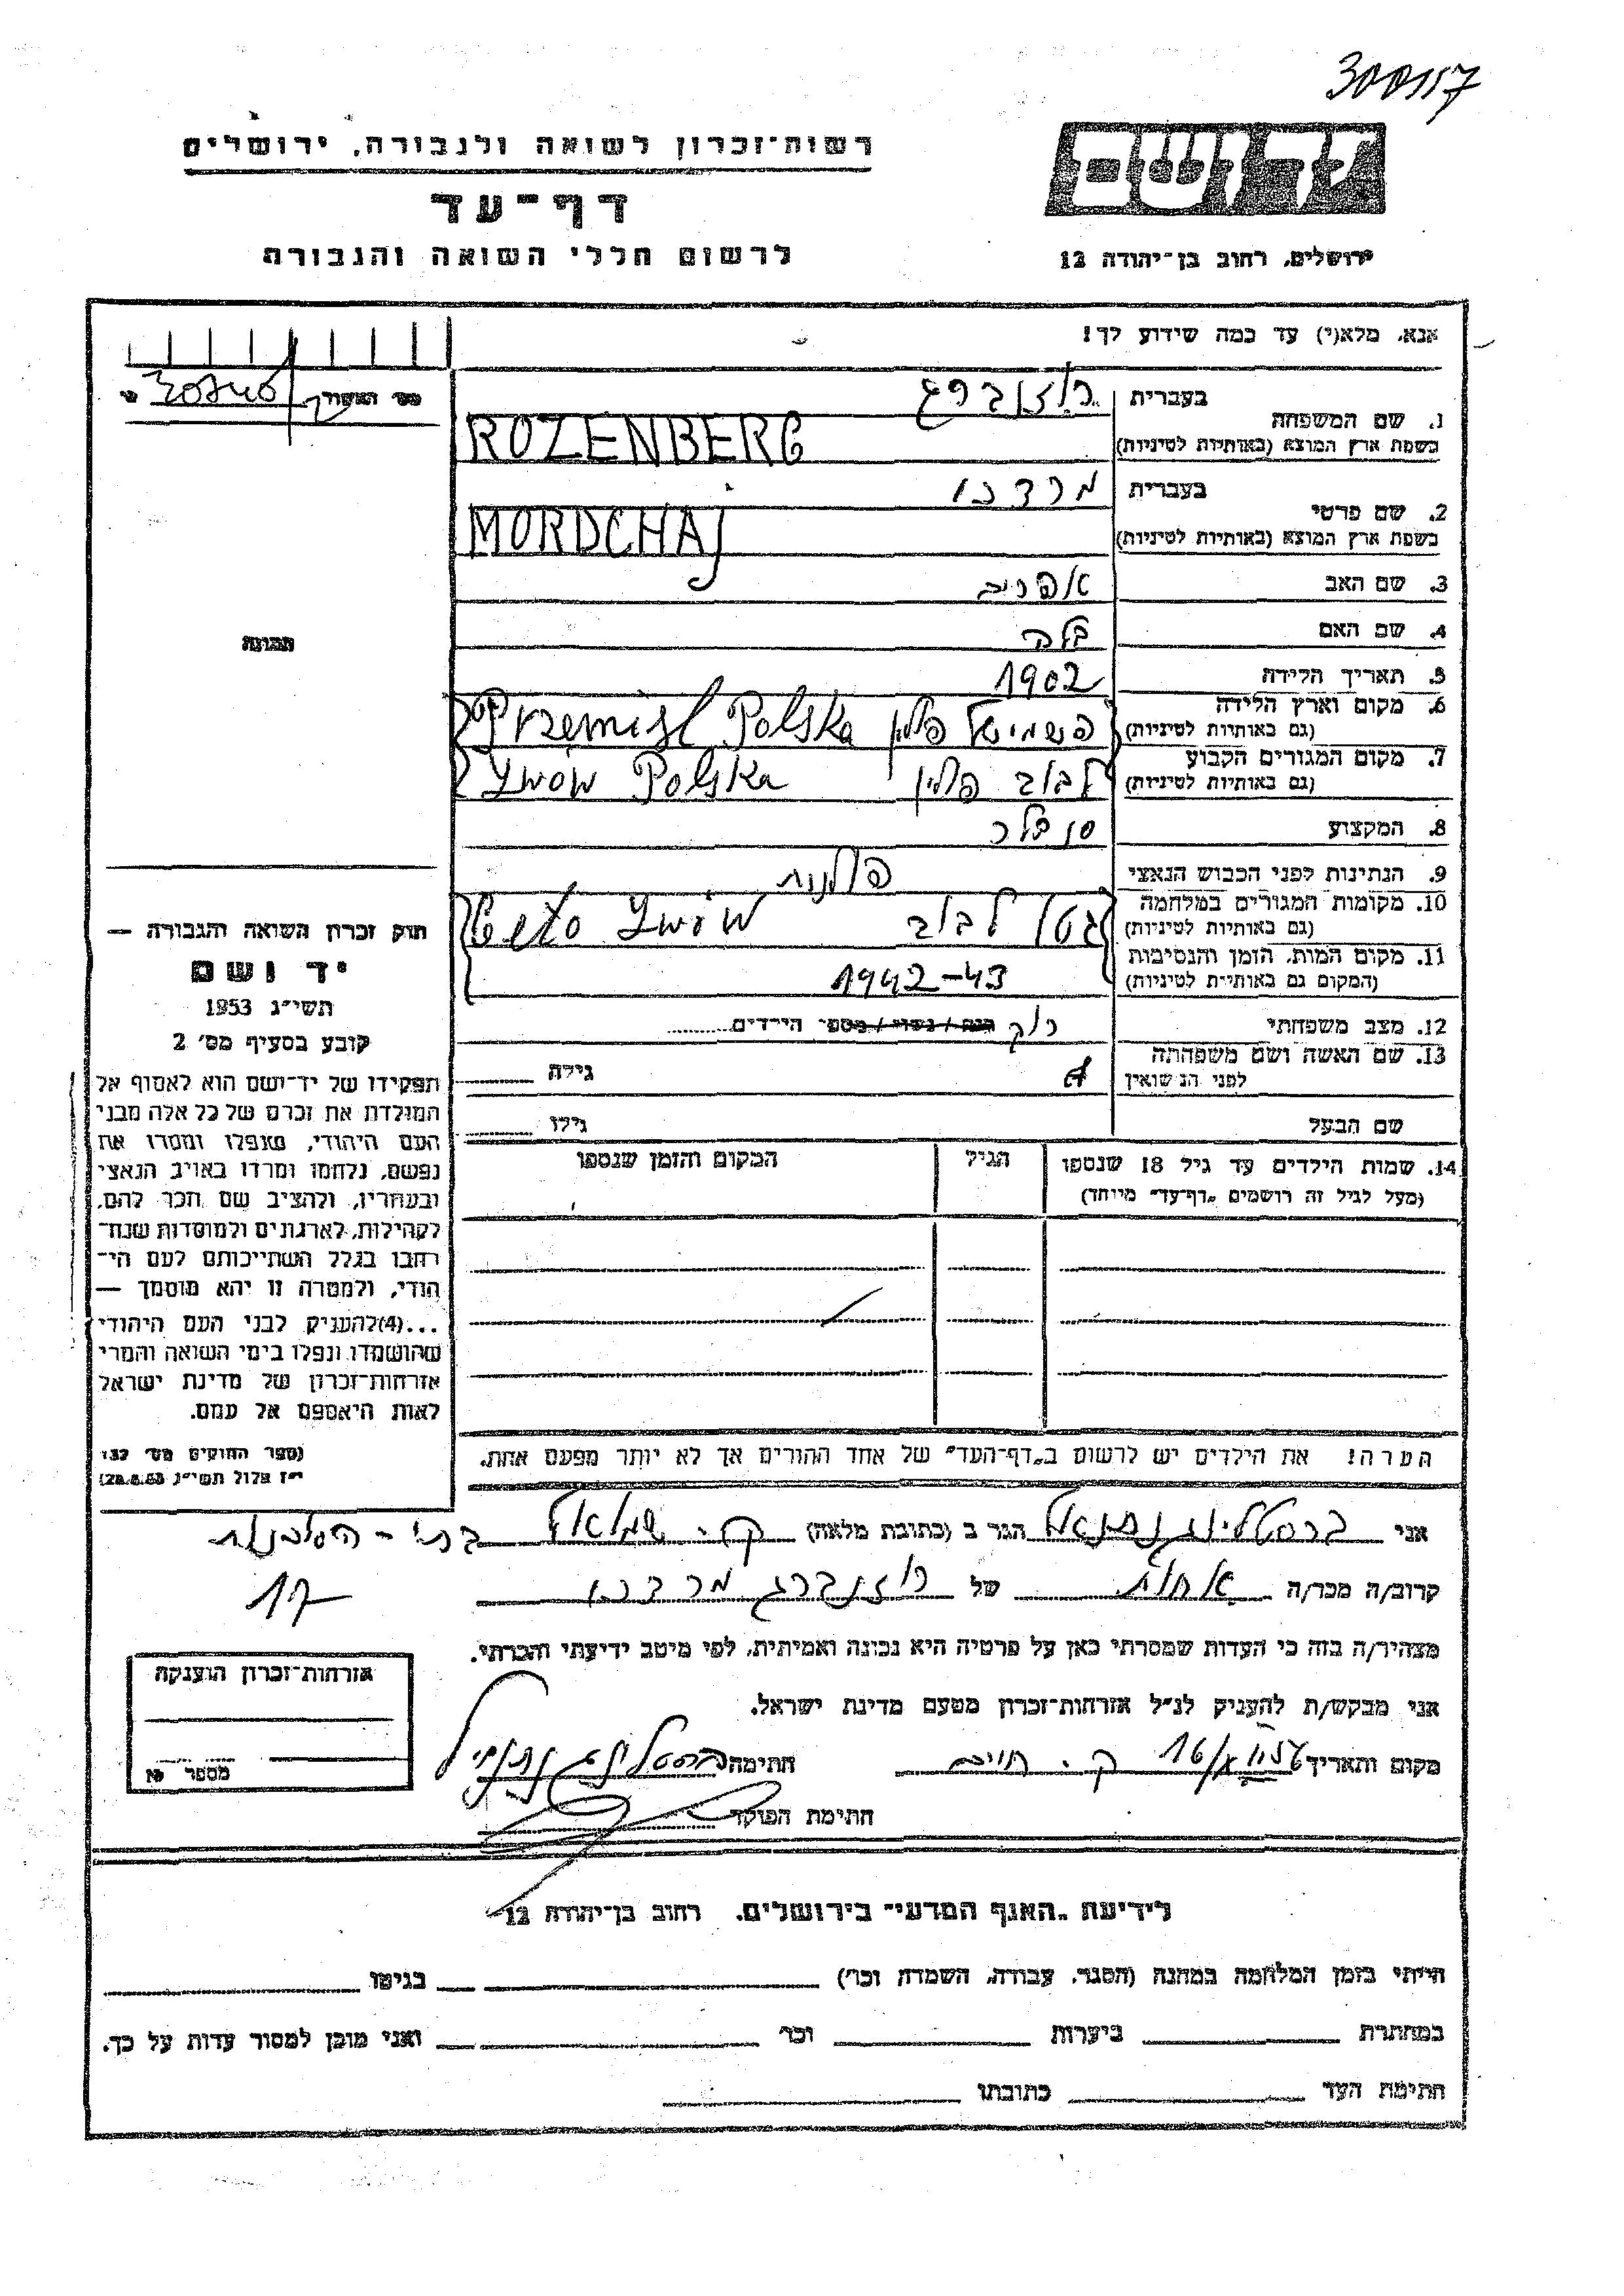 300117
רשות־זכרון לשואה ולגבורה, ירושלים
דף־עד
לרשום חללי השואה והגבורה
יד ושם
ירושלים, רחוב בן־יהודה 12
אנא, מלא(י) עד כמה שידוע לך!
1. שם המשפחה
בעברית רוזנברג
בשפת ארץ המוצא (באותיות לטיניות) ROZENBERG
2. שם פרטי
בעברית מרדכי
בשפת ארץ המוצא (באותיות לטיניות) MORDCHAJ
3. שם האב אפרים
4. שם האם
5. תאריך הלידה 1902
6. מקום וארץ הלידה
(גם באותיות לטיניות) פשמישל פולין Przemisl Polska
7. מקום המגורים הקבוע
(גם באותיות לטיניות) לבוב פולין Lwow Polska
8. המקצוע
9. הנתינות לפני הכבוש הנאצי פולנית
10. מקומות המגורים במלחמה
(גם באותיות לטיניות) גטו לבוב Geto Lwów
11. מקום המות, הזמן והנסיבות
(המקום גם באותיות לטיניות) 1942-43
12. מצב משפחתי רוק הנם / נשוי / מספר הילדים
13. שם האשה ושם משפחתה
לפני הנשואין גילה
שם הבעל גילו
14. שמות הילדים עד גיל 18 שנספו
(מעל לגיל זה רושמים „דף־עד” מיוחד)
הגיל
המקום והזמן שנספו
הערה! את הילדים יש לרשום ב„דף־העד” של אחד ההורים אך לא יותר מפעם אחת.
תמונה
חוק זכרון השואה והגבורה —
יד ושם
תשי״ג 1953
קובע בסעיף מס׳ 2
תפקידו של יד־ושם הוא לאסוף אל
המולדת את זכרם של כל אלה מבני
העם היהודי, שנפלו ומסרו את
נפשם, נלחמו ומרדו באויב הנאצי
ובעוזריו, ולהציב שם וזכר להם,
לקהילות, לארגונים ולמוסדות שנח־
רבו בגלל השתייכותם לעם הי־
הודי, ולמטרה זו יהא מוסמך —
...(4) להעניק לבני העם היהודי
שהושמדו ונפלו בימי השואה והמרי
אזרחות־זכרון של מדינת ישראל
לאות היאספם אל עמם.
(ספר החוקים מס׳ 132
י״ז אלול תשי״ג 28.8.53)
אני נתנאל הגר ב (כתובת מלאה) ק. שמואל
17
קרוב/ה מכר/ה אחות של רוזנברג מרדכי
מצהיר/ה בזה כי העדות שמסרתי כאן על פרטיה היא נכונה ואמיתית, לפי מיטב ידיעתי והכרתי.
אני מבקש/ת להעניק לנ״ל אזרחות־זכרון מטעם מדינת ישראל.
מקום ותאריך ק. חיים חתימה
חתימת הפוקד
אזרחות־זכרון הוענקה
מספר
לידיעת „האגף המדעי” בירושלים. רחוב בן־יהודה 12
הייתי בזמן המלחמה במחנה (הסגר, עבודה, השמדה וכו׳) בגיטו
במחתרת ביערות וכו׳ ואני מוכן למסור עדות על כך.
חתימת העד כתובתו